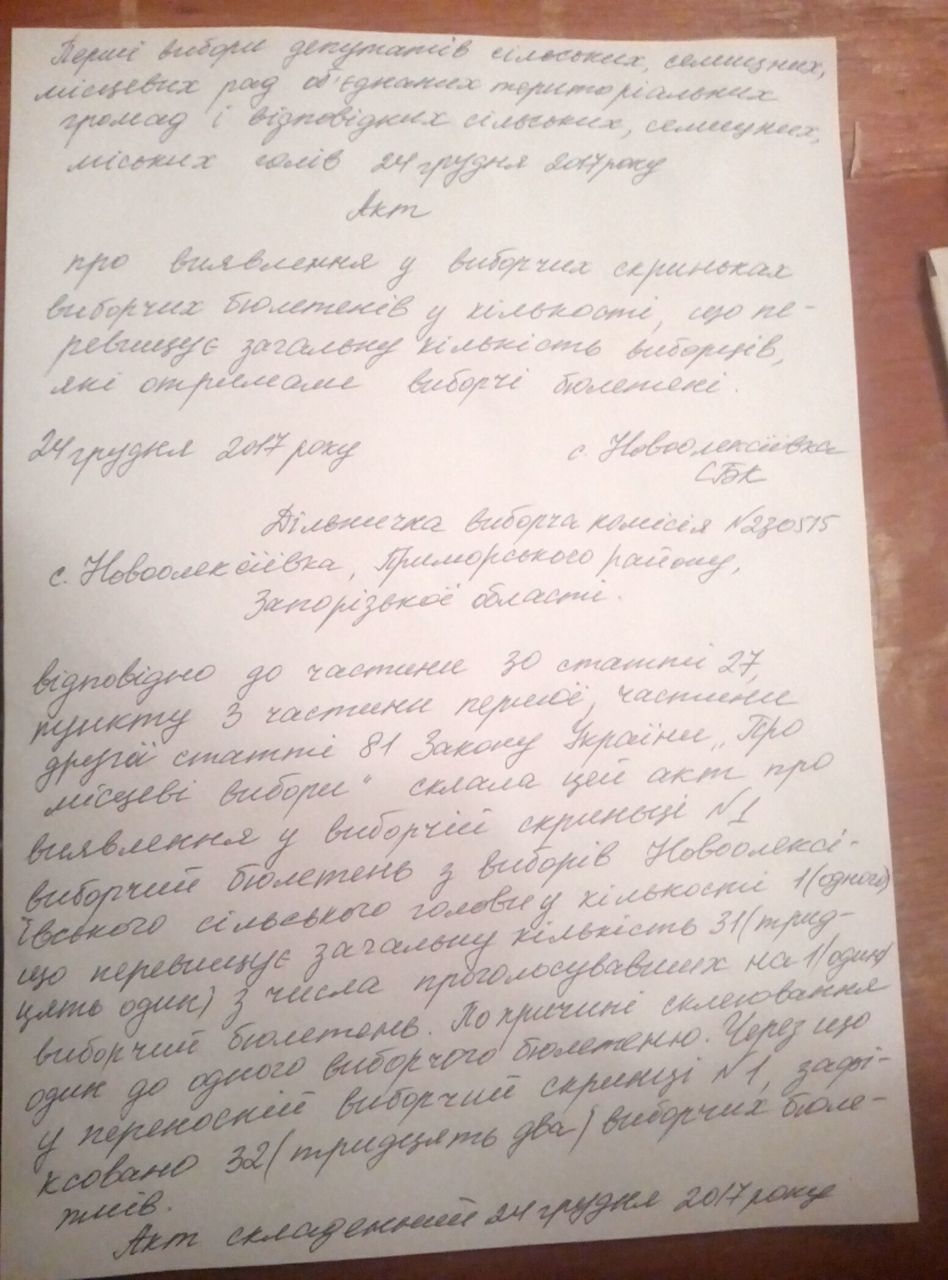 Перші вибори депутатів сільських, селищних,
місцевих рад об'єднаних територіальних
громад і відповідних сільських, селищних,
міських голів 24 грудня 2017 року
Акт
про виявлення у виборчих скриньках
виборчих бюлетенів у кількості, що пе-
ревищує загальну кількість виборців,
які отримали виборчі бюлетені.
24 грудня 2017 року с. Новоолексіївка
СБК
Дільнична виборча комісія №230515
с. Новоолексіївка, Приморського району,
Запорізької області.
відповідно до частини 30 статті 27,
пункту 3 частини першої, частини
другої статті 81 Закону України „Про
місцеві вибори" склала цей акт про
виявлення у виборчій скриньці №1
виборчий бюлетень з виборів Новоолексі-
ївського сільського голови у кількості 1(одного)
що перевищує загальну кількість 31(трид-
цять один) з числа проголосувавших на 1(один)
виборчий бюлетень. По причині склеювання
один до одного виборчого бюлетеню. Через що
у переносній виборчий скринці №1, зафі-
ксовано 32(тридцять два) виборчих бюле-
тнів.
Акт складенний 24 грудня 2017 року